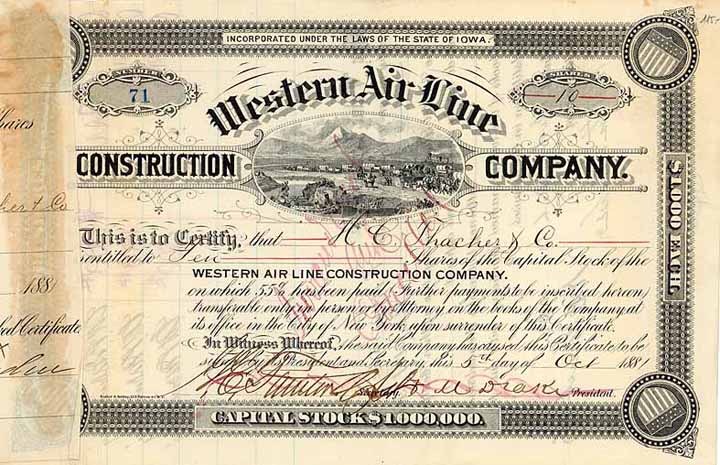 INCORPORATED UNDER THE LAWS OF THE STATE OF IOWA.
NUMBER
71
SHARES
10
Western Air Line
CONSTRUCTION COMPANY.
This is to Certify, that H. C. Thacher & Co.
is entitled to Ten Shares of the Capital Stock of the
WESTERN AIR LINE CONSTRUCTION COMPANY.
on which 55% has been paid. Further payments to be inscribed hereon
transferable only in person or by Attorney on the books of the Company at
its office in the City of New York upon surrender of this Certificate.
In Witness Whereof, the said Company has caused this Certificate to be
signed by its President and Secretary, this 5th day of Oct 1881
Secretary. Drake President.
CAPITAL STOCK $1,000,000.
$1,000 EACH.
Shares
cher & Co
1881
bed Certificate